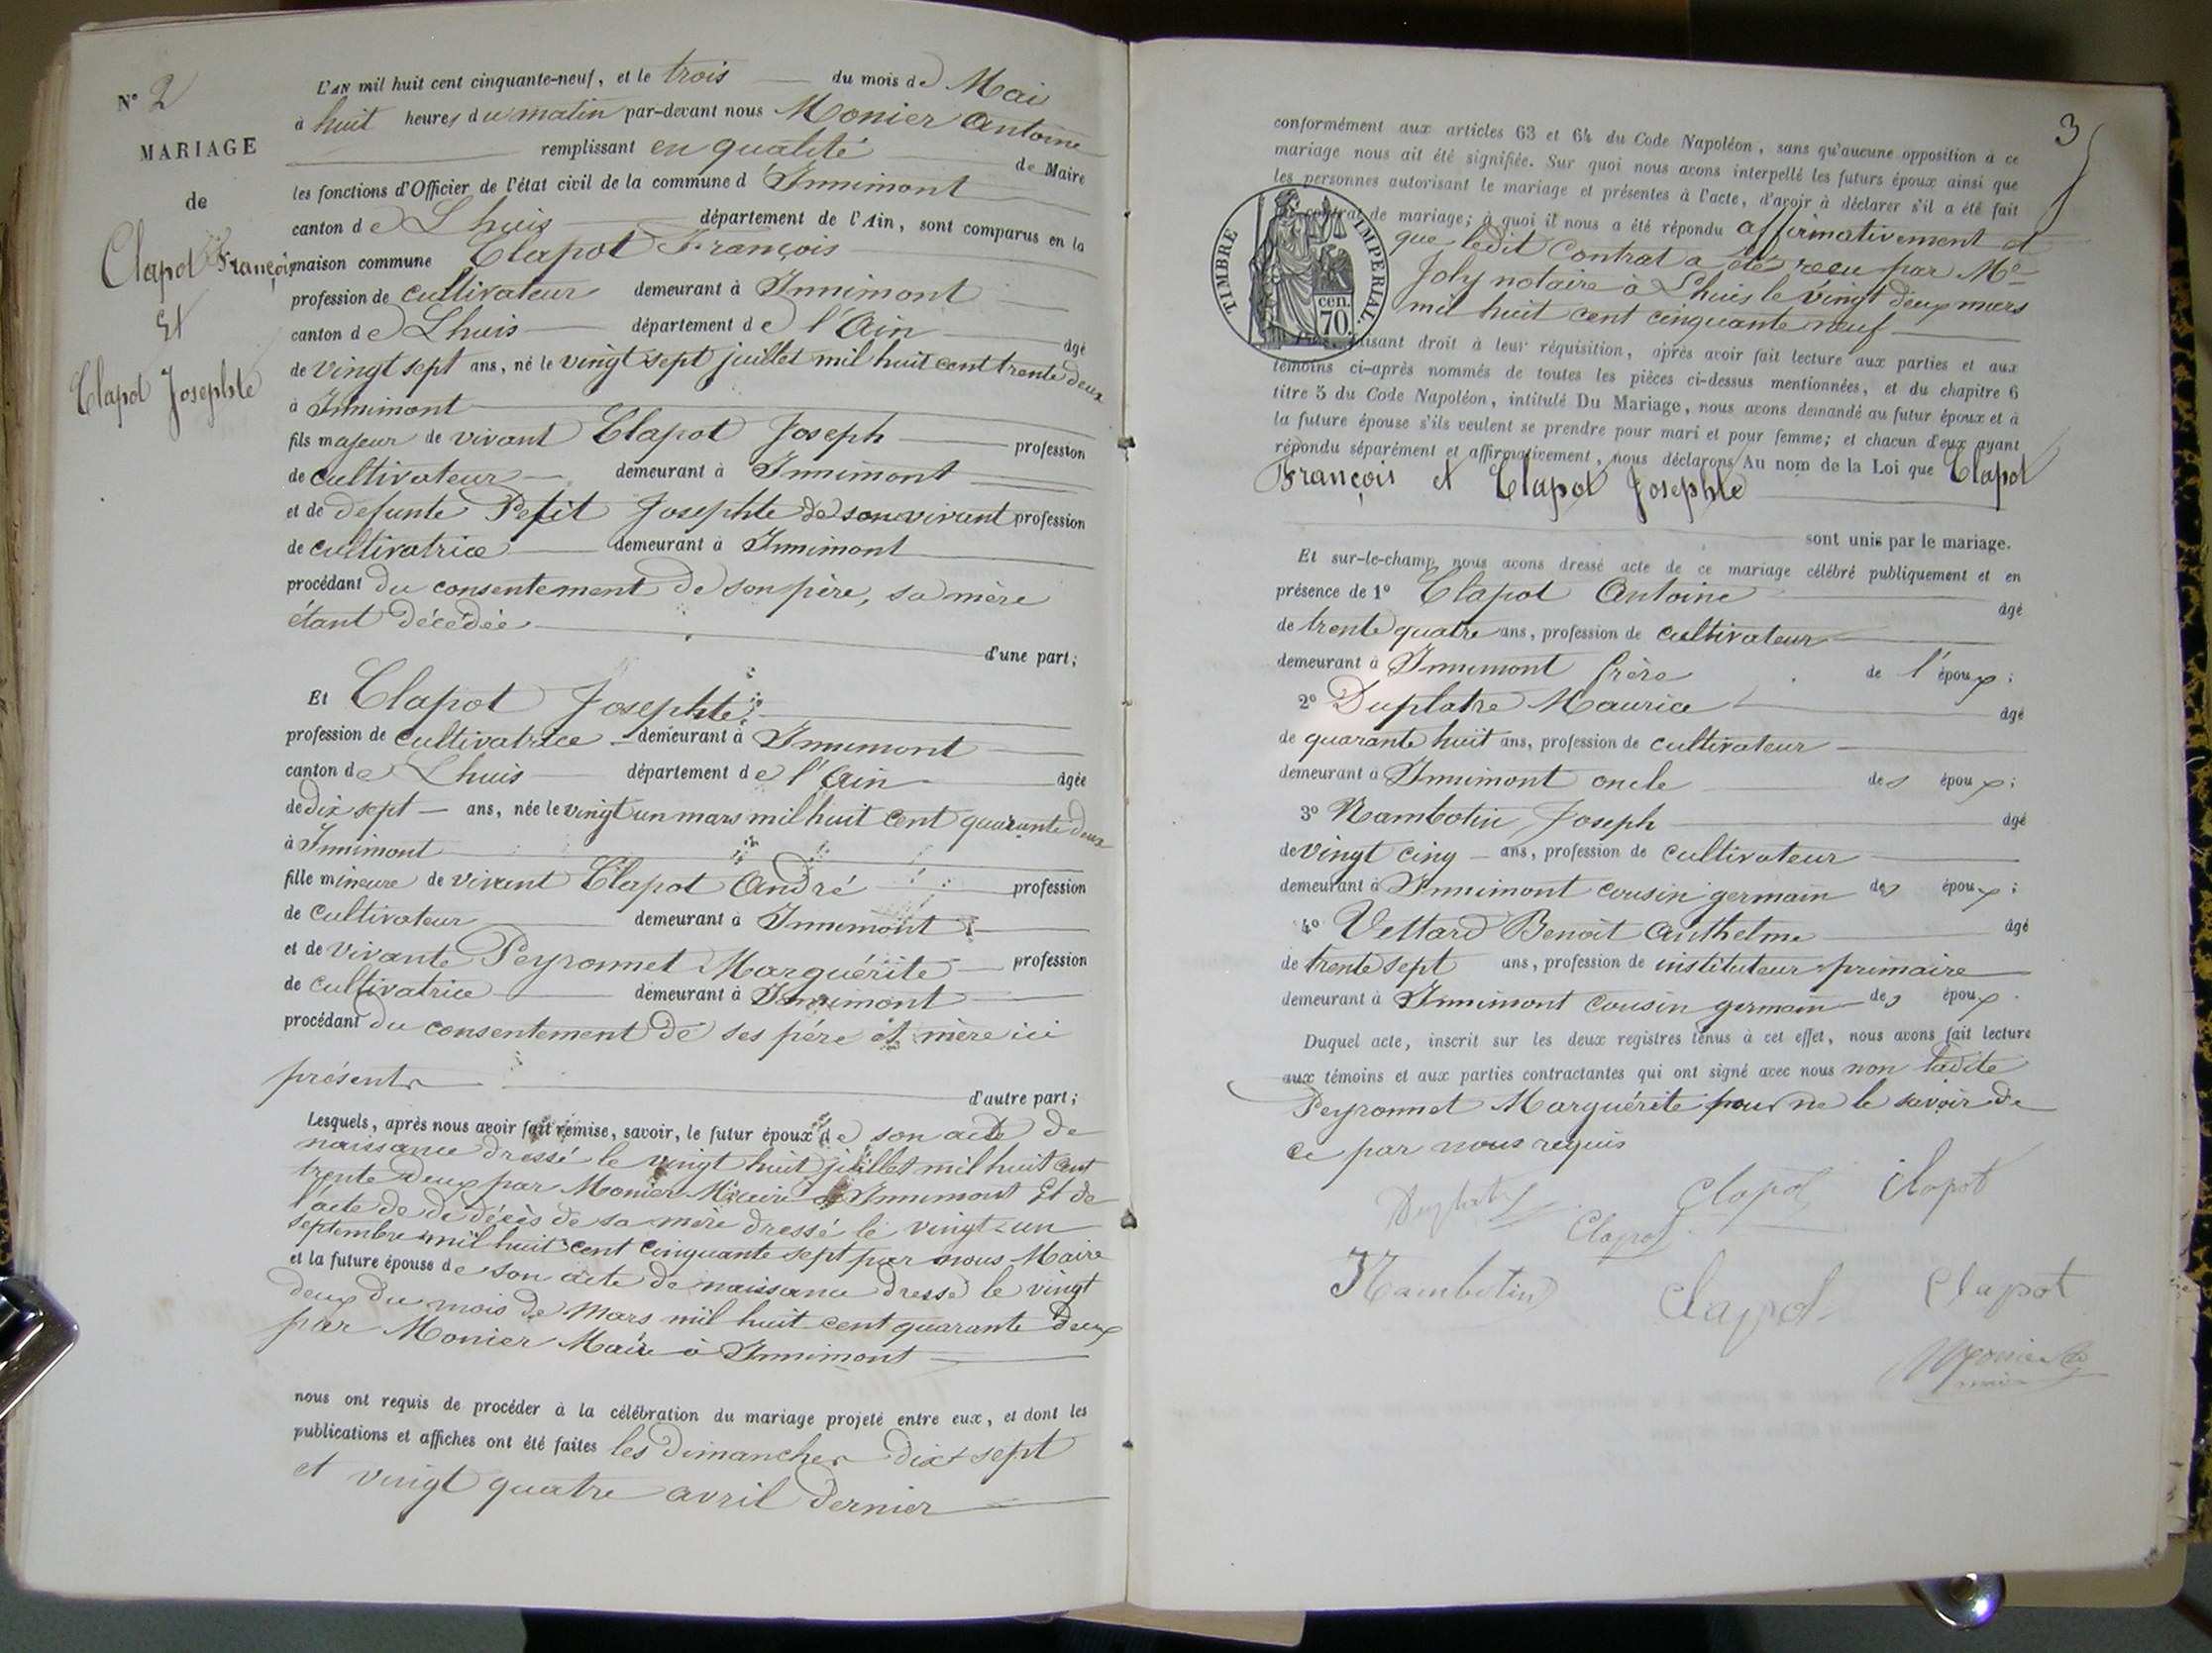 N° 2
MARIAGE
de
Clapot François
Et
Clapot Josephte
L'AN mil huit cent cinquante-neuf, et le trois du mois de Mai
à huit heures du matin par-devant nous Monier Antoine
remplissant en qualité de Maire
les fonctions d'Officier de l'état civil de la commune d'Innimont
canton de Lhuis département de l'Ain, sont comparus en la
maison commune Clapot François
profession de cultivateur demeurant à Innimont
canton de Lhuis département de l'Ain âgé
de vingt sept ans, né le vingt sept juillet mil huit cent trente deux
à Innimont
fils majeur de vivant Clapot Joseph profession
de cultivateur demeurant à Innimont
et de defunte Petit Josephte de son vivant profession
de cultivatrice demeurant à Innimont
procédant du consentement de son père, sa mère
étant décédée
d'une part;
Et Clapot Josephte
profession de cultivatrice demeurant à Innimont
canton de Lhuis département de l'Ain âgée
de dix sept ans, née le vingt un mars mil huit cent quarante deux
à Innimont
fille mineure de vivant Clapot André profession
de cultivateur demeurant à Innimont
et de vivante Peyronnet Marguérite profession
de cultivatrice demeurant à Innimont
procédant du consentement de ses père et mère ici
présents
d'autre part;
Lesquels, après nous avoir fait remise, savoir, le futur époux de son acte de
naissance dressé le vingt huit juillet mil huit cent
trente deux par Monier Maire à Innimont Et de
l'acte de de décès de sa mère dressé le vingt-un
septembre mil huit cent cinquante sept par nous Maire
et la future épouse de son acte de naissance dressé le vingt
deux du mois de Mars mil huit cent quarante deux
par Monier Maire à Innimont
nous ont requis de procéder à la célébration du mariage projeté entre eux, et dont les
publications et affiches ont été faites les dimanches dix sept
et vingt quatre avril dernier
3
conformément aux articles 63 et 64 du Code Napoléon, sans qu'aucune opposition à ce
mariage nous ait été signifiée. Sur quoi nous avons interpellé les futurs époux ainsi que
les personnes autorisant le mariage et présentes à l'acte, d'avoir à déclarer s'il a été fait
contrat de mariage; à quoi il nous a été répondu affirmativement et
que ledit contrat a été reçu par Me
Joly notaire à Lhuis le vingt deux mars
mil huit cent cinquante neuf
TIMBRE IMPERIAL.
cen.
70.
faisant droit à leur réquisition, après avoir fait lecture aux parties et aux
témoins ci-après nommés de toutes les pièces ci-dessus mentionnées, et du chapitre 6
titre 5 du Code Napoléon, intitulé Du Mariage, nous avons demandé au futur époux et à
la future épouse s'ils veulent se prendre pour mari et pour femme; et chacun d'eux ayant
répondu séparément et affirmativement, nous déclarons Au nom de la Loi que Clapot
François et Clapot Josephte
sont unis par le mariage.
Et sur-le-champ nous avons dressé acte de ce mariage célébré publiquement et en
présence de 1° Clapot Antoine âgé
de trente quatre ans, profession de cultivateur
demeurant à Innimont frère de l'époux;
2° Duplatre Maurice âgé
de quarante huit ans, profession de cultivateur
demeurant à Innimont oncle des époux;
3° Rambotin Joseph âgé
de vingt cinq ans, profession de cultivateur
demeurant à Innimont cousin germain des époux;
4° Vettard Benoit Anthelme âgé
de trente sept ans, profession de instituteur primaire
demeurant à Innimont cousin germain des époux.
Duquel acte, inscrit sur les deux registres tenus à cet effet, nous avons fait lecture
aux témoins et aux parties contractantes qui ont signé avec nous non ladite
Peyronnet Marguérite pour ne le savoir de
ce par nous requis
Clapot Clapot
Clapot
Rambotin Clapot Clapot
Monier
maire